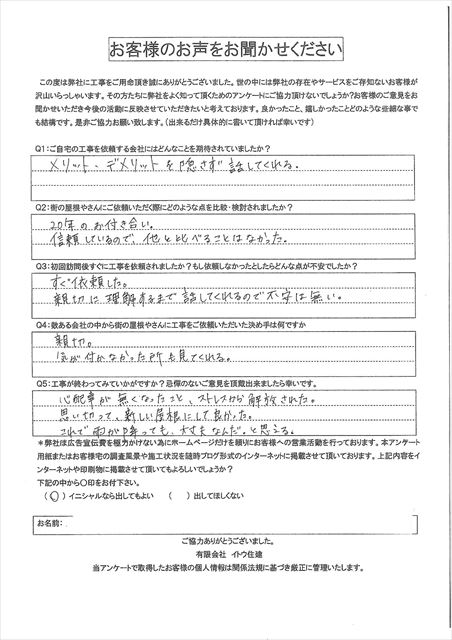 お客様のお声をお聞かせください
この度は弊社に工事をご用命頂き誠にありがとうございました。世の中には弊社の存在やサービスをご存知ないお客様が
沢山いらっしゃいます。その方たちに弊社をよく知って頂くためのアンケートにご協力頂けないでしょうか?お客様のご意見をお
聞かせいただき今後の活動に反映させていただきたいと考えております。良かったこと、嬉しかったことどのような些細な事で
も結構です。是非ご協力お願い致します。(出来るだけ具体的に書いて頂ければ幸いです)
Q1:ご自宅の工事を依頼する会社にはどんなことを期待されていましたか?
メリット・デメリットを隠さず話してくれる.
Q2:街の屋根やさんにご依頼いただく際にどのような点を比較・検討されましたか?
20年のお付き合い。
信頼しているので、他と比べることはなかった.
Q3:初回訪問後すぐに工事を依頼されましたか?もし依頼しなかったとしたらどんな点が不安でしたか?
すぐ依頼した。
親切に理解するまで話してくれるので不安は無い。
Q4:数ある会社の中から街の屋根やさんに工事をご依頼いただいた決め手は何ですか
親切。
気が付かなかった所も見てくれる。
Q5:工事が終わってみていかがですか?忌憚のないご意見を頂戴出来ましたら幸いです。
心配事が無くなったこと、ストレスから解放された。
思い切って、新しい屋根にして良かった。
これで雨が降っても、大丈夫なんだ。と思える。
*弊社は広告宣伝費を極力かけない為にホームページだけを頼りにお客様への営業活動を行っております。本アンケート
用紙またはお客様宅の調査風景や施工状況を随時ブログ形式のインターネットに掲載させて頂いております。上記内容をイ
ンターネットや印刷物に掲載させて頂いてもよろしいでしょうか?
下記の中から〇印をお付下さい。
(〇)イニシャルなら出してもよい ( )出してほしくない
お名前:
ご協力ありがとうございました。
有限会社 イトウ住建
当アンケートで取得したお客様の個人情報は関係法規に基づき厳正に管理いたします。